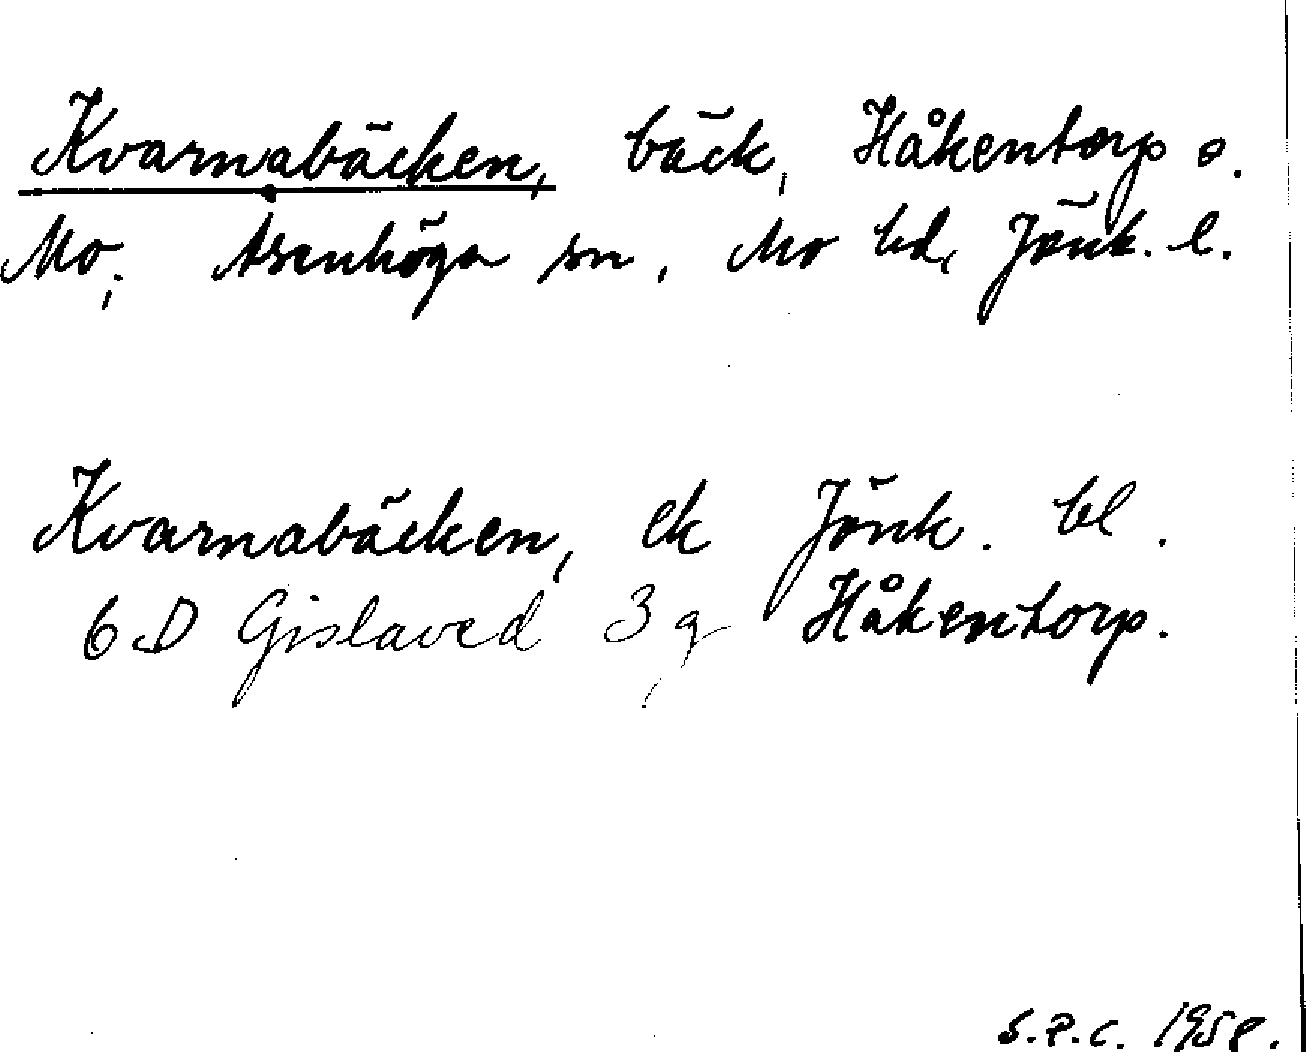 Kvarnabäcken, bäck, Håkentorp o.
Mo, Åsenhöga sn, Mo hd, Jönk. l.
Kvarnabäcken, ek Jönk. bl.
6 D Gislaved 3 g Håkentorp.
S.P.C. 1958.